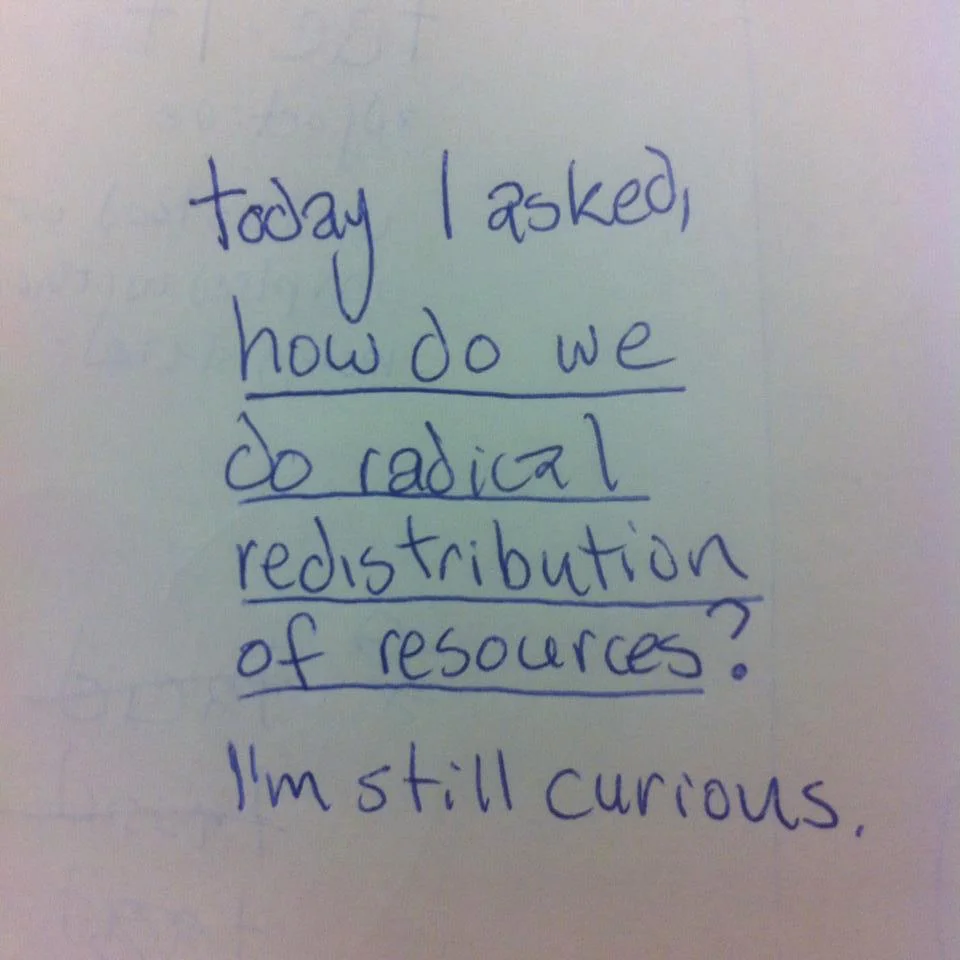 today I asked,
how do we
do radical
redistribution
of resources?
I'm still curious.